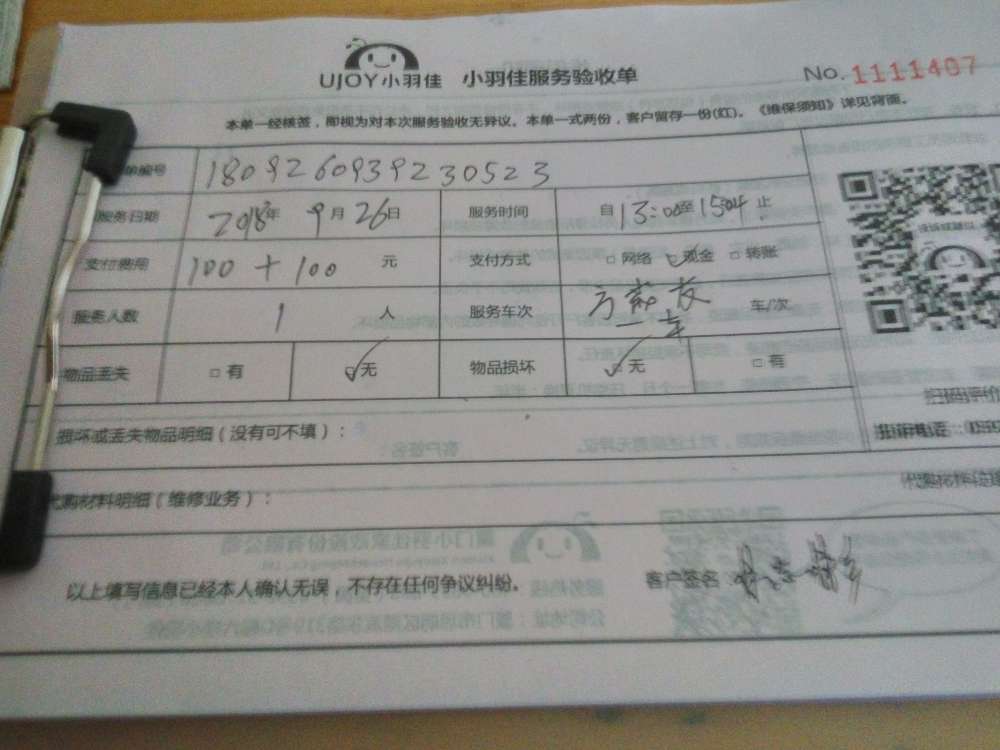 UJOY小羽佳 小羽佳服务验收单 No.1111407
本单一经核签，即视为对本次服务验收无异议。本单一式两份，客户留存一份(红)。《维保须知》详见背面。
单编号 180926093923052​3
服务日期 2018年 9月26日 服务时间 自13:00至15:04止
支付费用 100+100 元 支付方式 □网络 ☑现金 □转账
服务人数 1 人 服务车次 车/次
物品丢失 □有 ☑无 物品损坏 ☑无 □有
损坏或丢失物品明细（没有可不填）：
扫码评价
代购材料明细（维修业务）：
以上填写信息已经本人确认无误，不存在任何争议纠纷。 客户签名